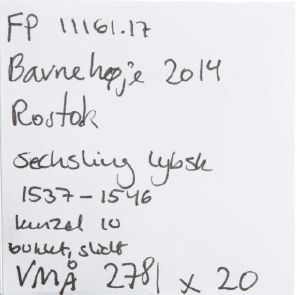 FP 11161.17
Barnehøje 2014
Rostok
Sechsling lybsk
1537-1546
kunzel 10
bukket, slidt
VMÅ 2781 x 20